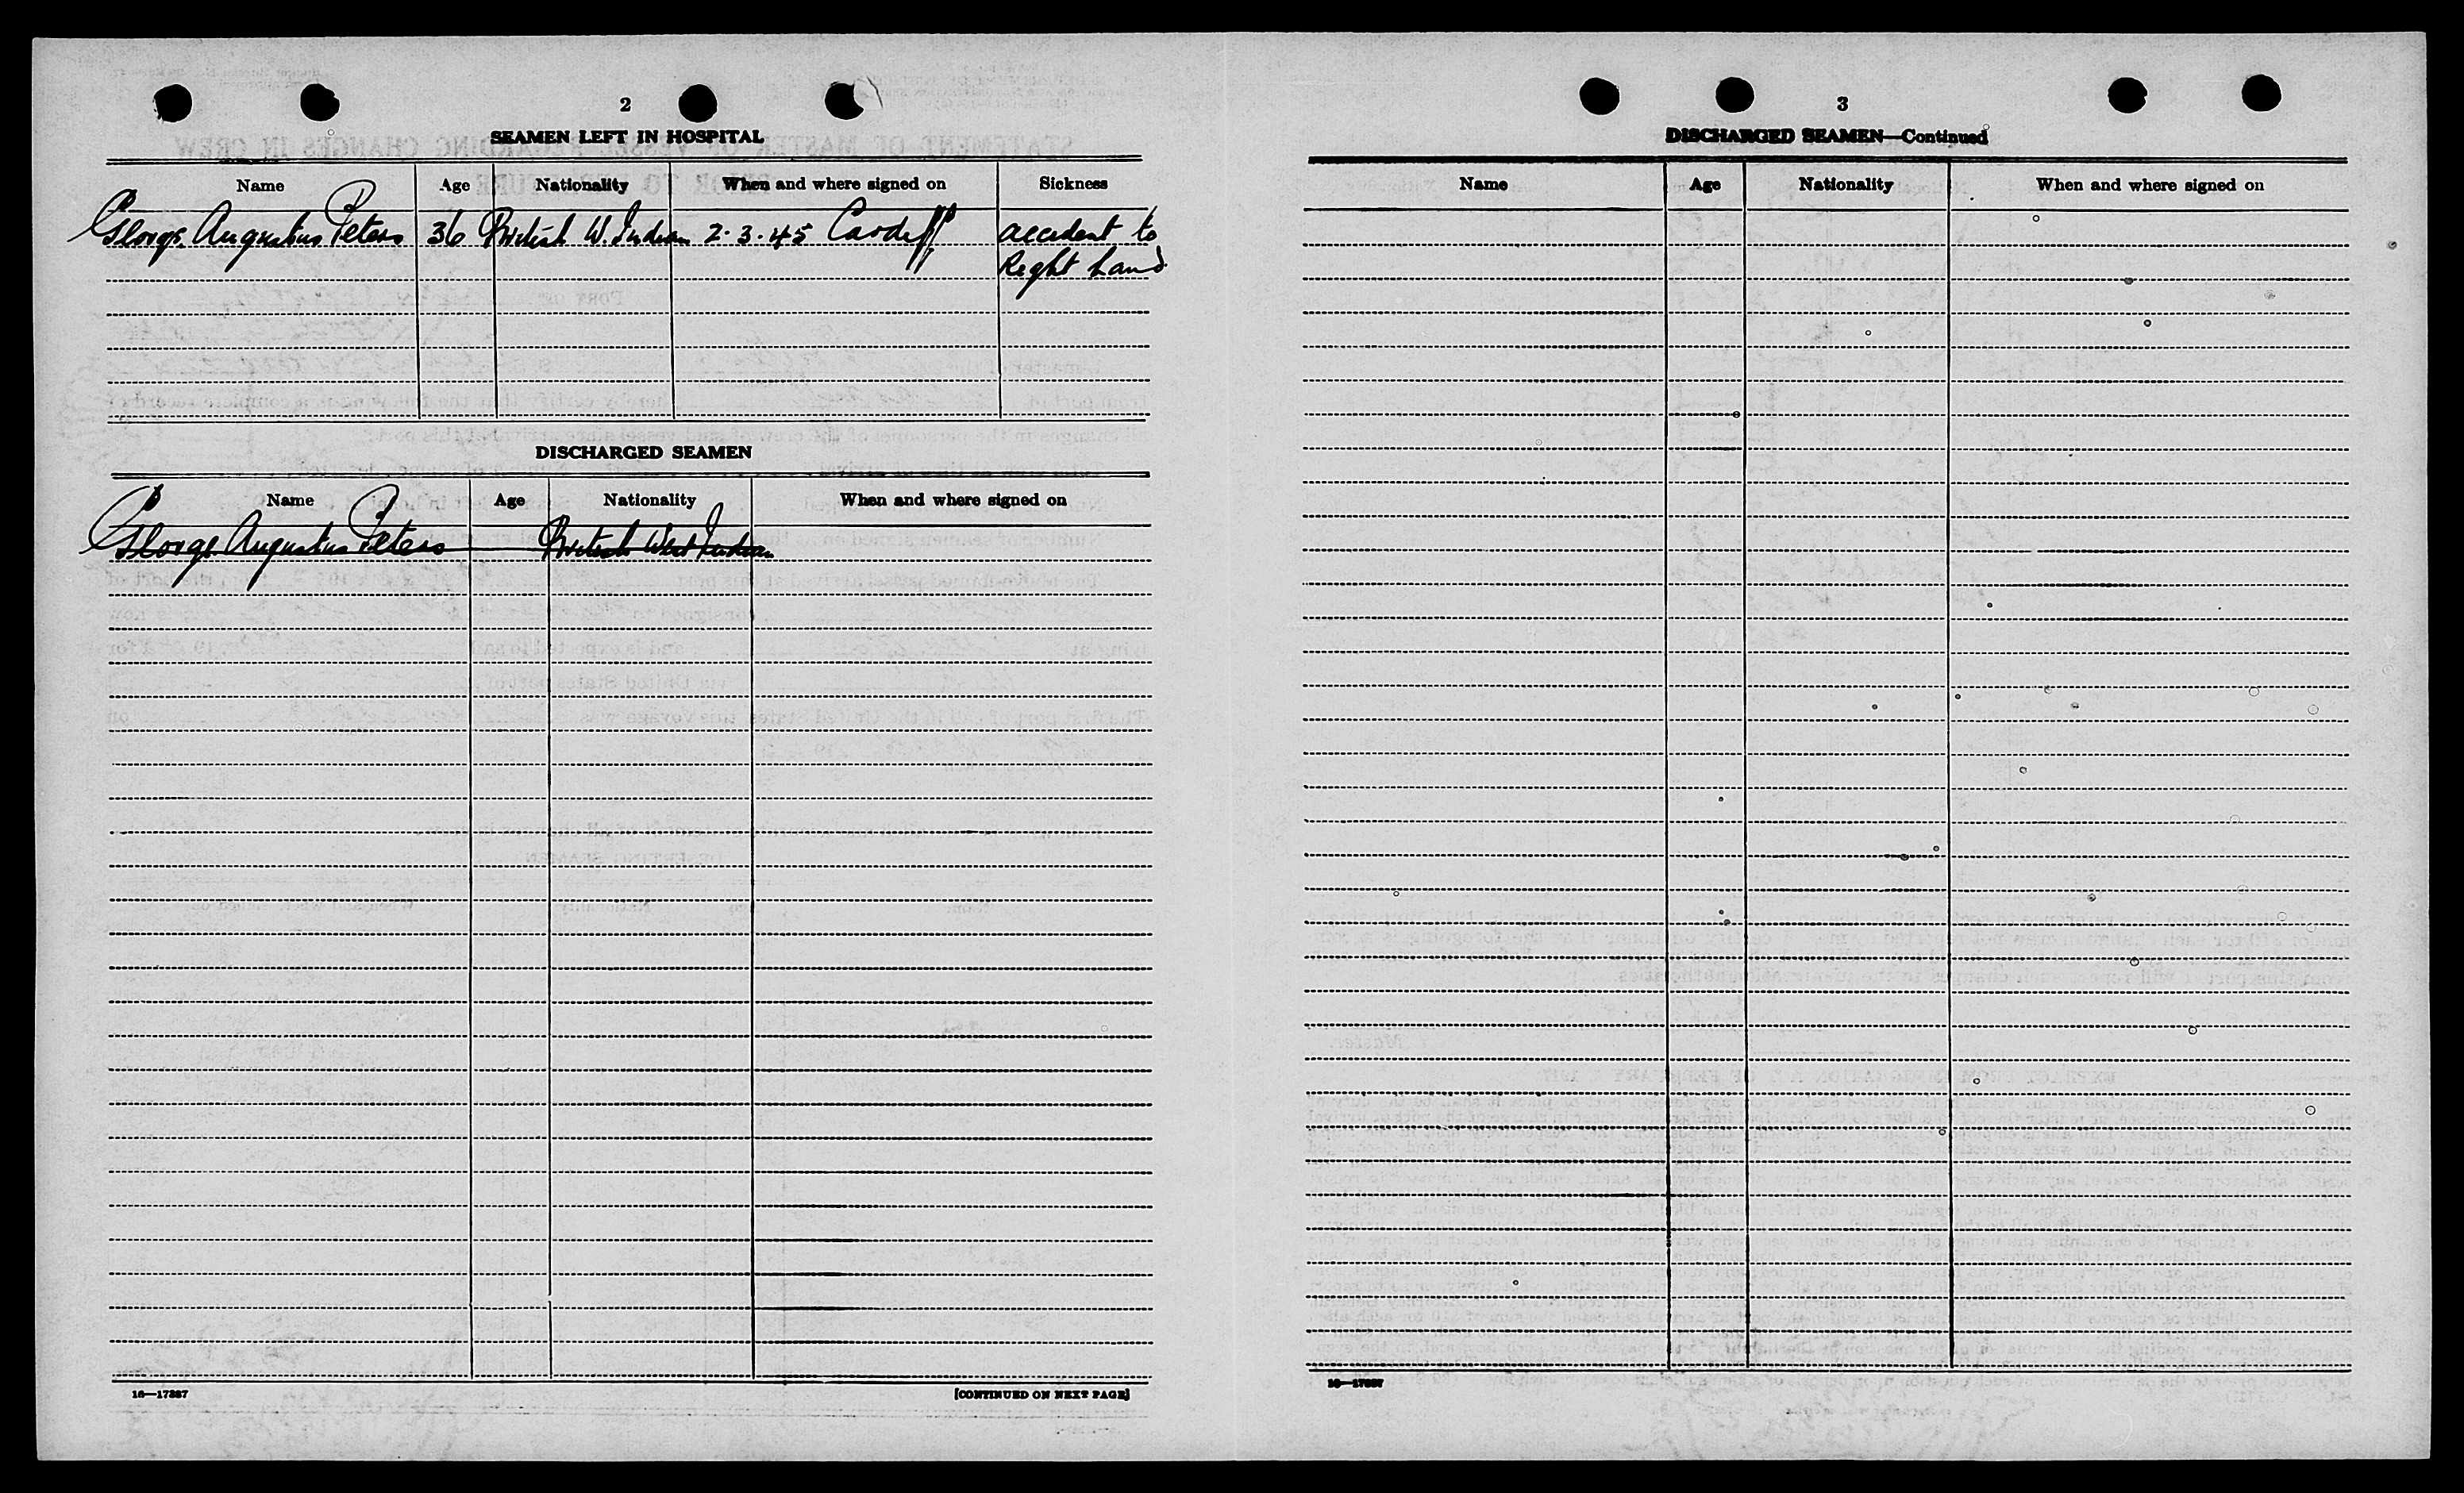 2
SEAMEN LEFT IN HOSPITAL
Name Age Nationality When and where signed on Sickness
George Augustus Peters 36 British W. Indian 2.3.45 Cardiff accident to
Right hand
DISCHARGED SEAMEN
Name Age Nationality When and where signed on
George Augustus Peters British West Indian
16—17387 [CONTINUED ON NEXT PAGE]
3
DISCHARGED SEAMEN—Continued
Name Age Nationality When and where signed on
16—17387